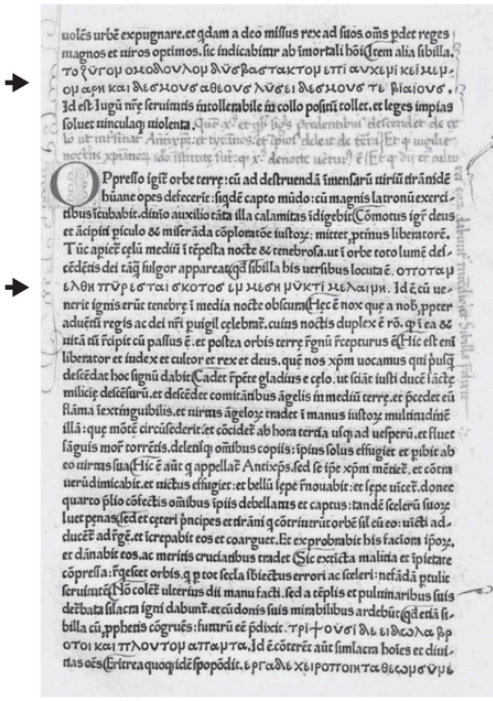 uolēs urbē expugnare. et qdam a deo missus rex ad suos om̄s pdet reges
magnos et uiros optimos. sic iudicabitur ab īmortali hōi Item alia sibilla.
το ξυγομ ομοδουλομ δλυσβαστακτομ επι αυχεμι κειμεμ-
ομ αρη και δεσμους αθεους λυσει δεσμους τε βιαιους.
Id est Iugū nr̄e seruitutis intollerabile in collo positū tollet. et leges impias
soluet uinculaq uiolenta.
OPpresso igit̄ orbe terre: cū ad destruendā imensarū uiriū tirānidē
hūane opes defecerit: siqdē capto mūdo: cū magnis latronū exerci-
tibus īcubabit. diuīo auxilio tāta illa calamitas īdigebit Cōmotus igr̄ deus
et ācipiti piculo & miserāda cōploratōe iustoƺ: mittet ptinus liberatorē.
Tūc apiet̄ celū mediū ī tēpesta nocte & tenebrosa. ut ī orbe toto lumē des-
cēdētis dei tāq fulgor appareat qd sibilla his versibus locuta ē. οποταμ
ελθη πυρεσται σκοτος εμ μεση μυκτι μελαιμη. Id ē cū ue-
nerit ignis erūt tenebre ī media nocte obscura Hec ē nox que a nob ppter
aduētū regis ac dei nr̄i puigil celebrat̄. cuius noctis duplex ē rō. q ī ea &
uitā tū recipit cū passus ē. et postea orbis terre r̄gnū recepturus ē Hic est enī
liberator et iudex et cultor et rex et deus. quē nos xpm uocamus qui pusq
descēdat hoc signū dabit Cadet r̄pēte gladius e celo. ut sciāt iusti ducē sācte
milicie descēsurū. et descēdet comitātibus āgelis in mediū terre. et pcedet eū
flāma īextinguibilis. et uirtus āgeloƺ tradet ī manus iustoƺ multitudinē
illā: que mōtē circūsederit. et cōcidet ab hora tertia usq ad uesperū. et fluet
sāguis mor̄ torrētis. deletisq omibus copiis: īpius solus effugiet et pibit ab
eo uirtus sua Hic ē aūt q appellat̄ Antixps. sed se ipe xpm mētiet̄. et cōtra
uerū dimicabit. et uictus effugiet: et bellū sepe r̄nouabit: et sepe uīcet̄. donec
quarto plio cōfectis omībus īpiis debellatus et captus: tādē sceleƺ suoƺ
luet penas. sed et ceteri pncipes et tirāni q cōtriuerūt orbē sil cū eo: uīcti ad-
ducēt̄ ad r̄gē. et īcrepabit eos et coarguet. Et exprobrabit his facīora ipoƺ.
et dānabit eos. ac meritis cruciatibus tradet Sic extīcta malitia et īpietate
cōpressa: r̄qescet orbis. q p tot secla sbiectus errori ac sceleri: nefādā ptulit
seruitutē Nō colēt̄ ulterius dii manu facti. sed a tēplis et puluinaribus suis
det̄bata silacra igni dabunt̄. et cū donis suis mirabilibus ardebūt qd etiā si-
billa cū pphetis cōgruēs: futurū eē pdixit. τριψουσι δε ειδωλα βρ
οτοι και πλουτομ απαμτα. Id ē cōterēt aūt simlacra hoīes et diui-
tias oēs Eritrea quoq idē spopōdit. εργα δε χειροποιητα θεωμ συμε